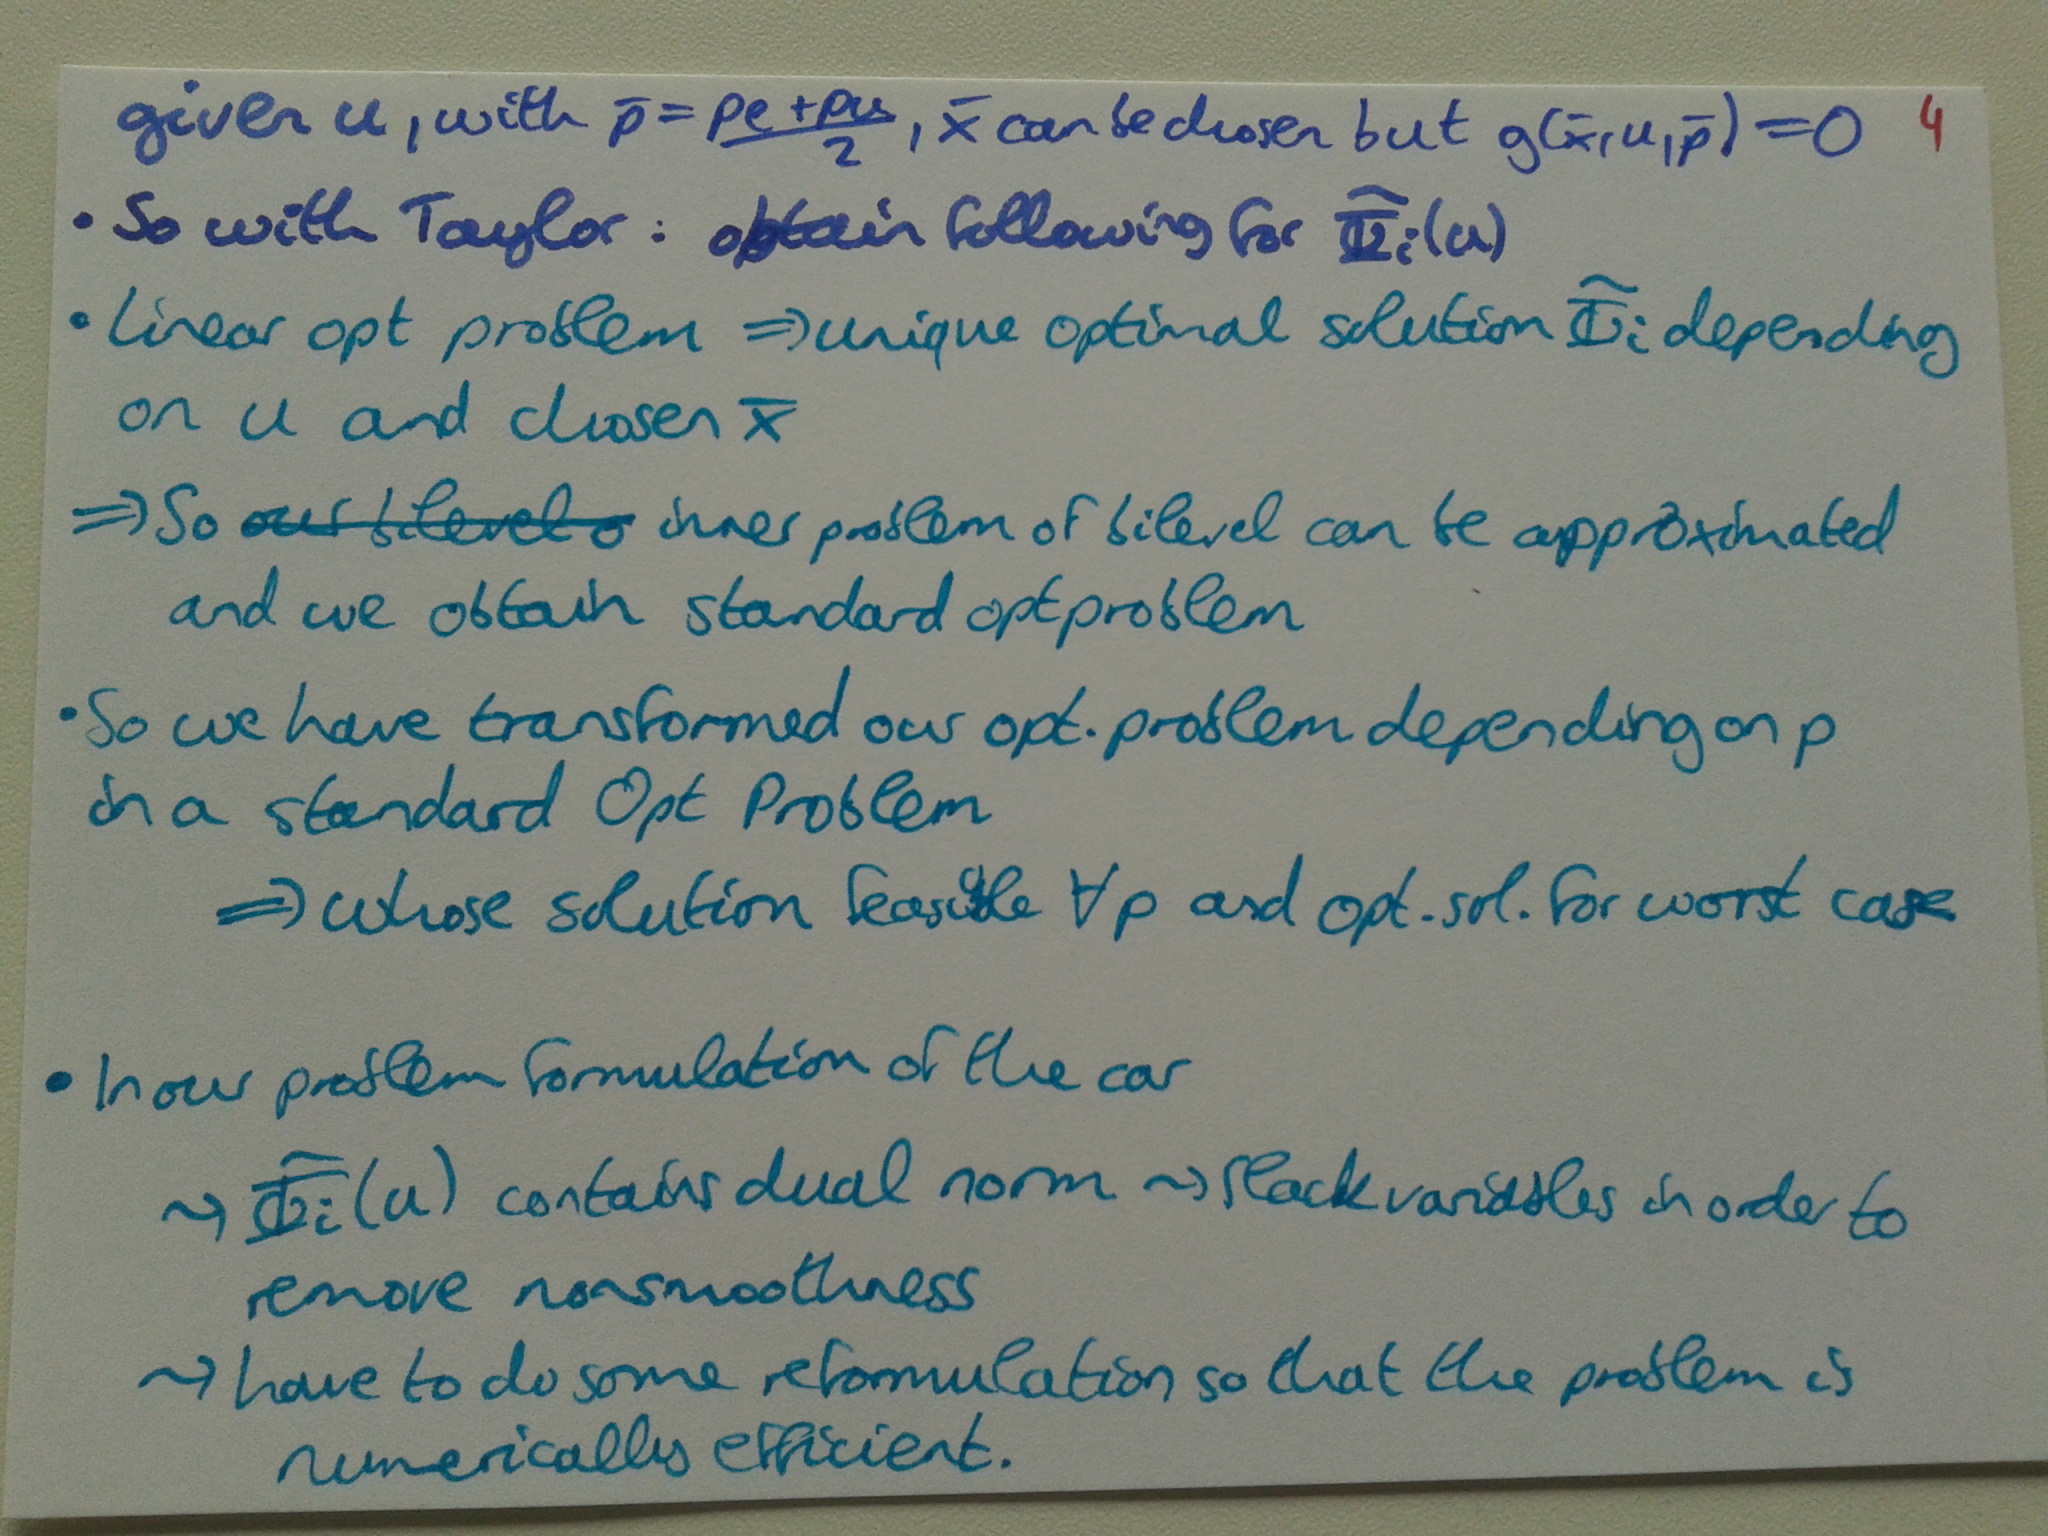 given u, with p̄ = (pe + pu)/2, x̄ can be chosen but g(x̄, u, p̄) = 0 4
• So with Taylor: obtain following for Φ̂i(u)
• Linear opt problem ⇒ unique optimal solution Φ̂i depending
on u and chosen x̄
⇒ So ~~our bilevel o~~ inner problem of bilevel can be approximated
and we obtain standard opt problem
• So we have transformed our opt. problem depending on p
in a standard Opt Problem
⇒ whose solution feasible ∀p and opt. sol. for worst case
• In our problem formulation of the car
⤳ Φ̂i(u) contains dual norm ⤳ slack variables in order to
remove nonsmoothness
⤳ have to do some reformulation so that the problem is
numerically efficient.